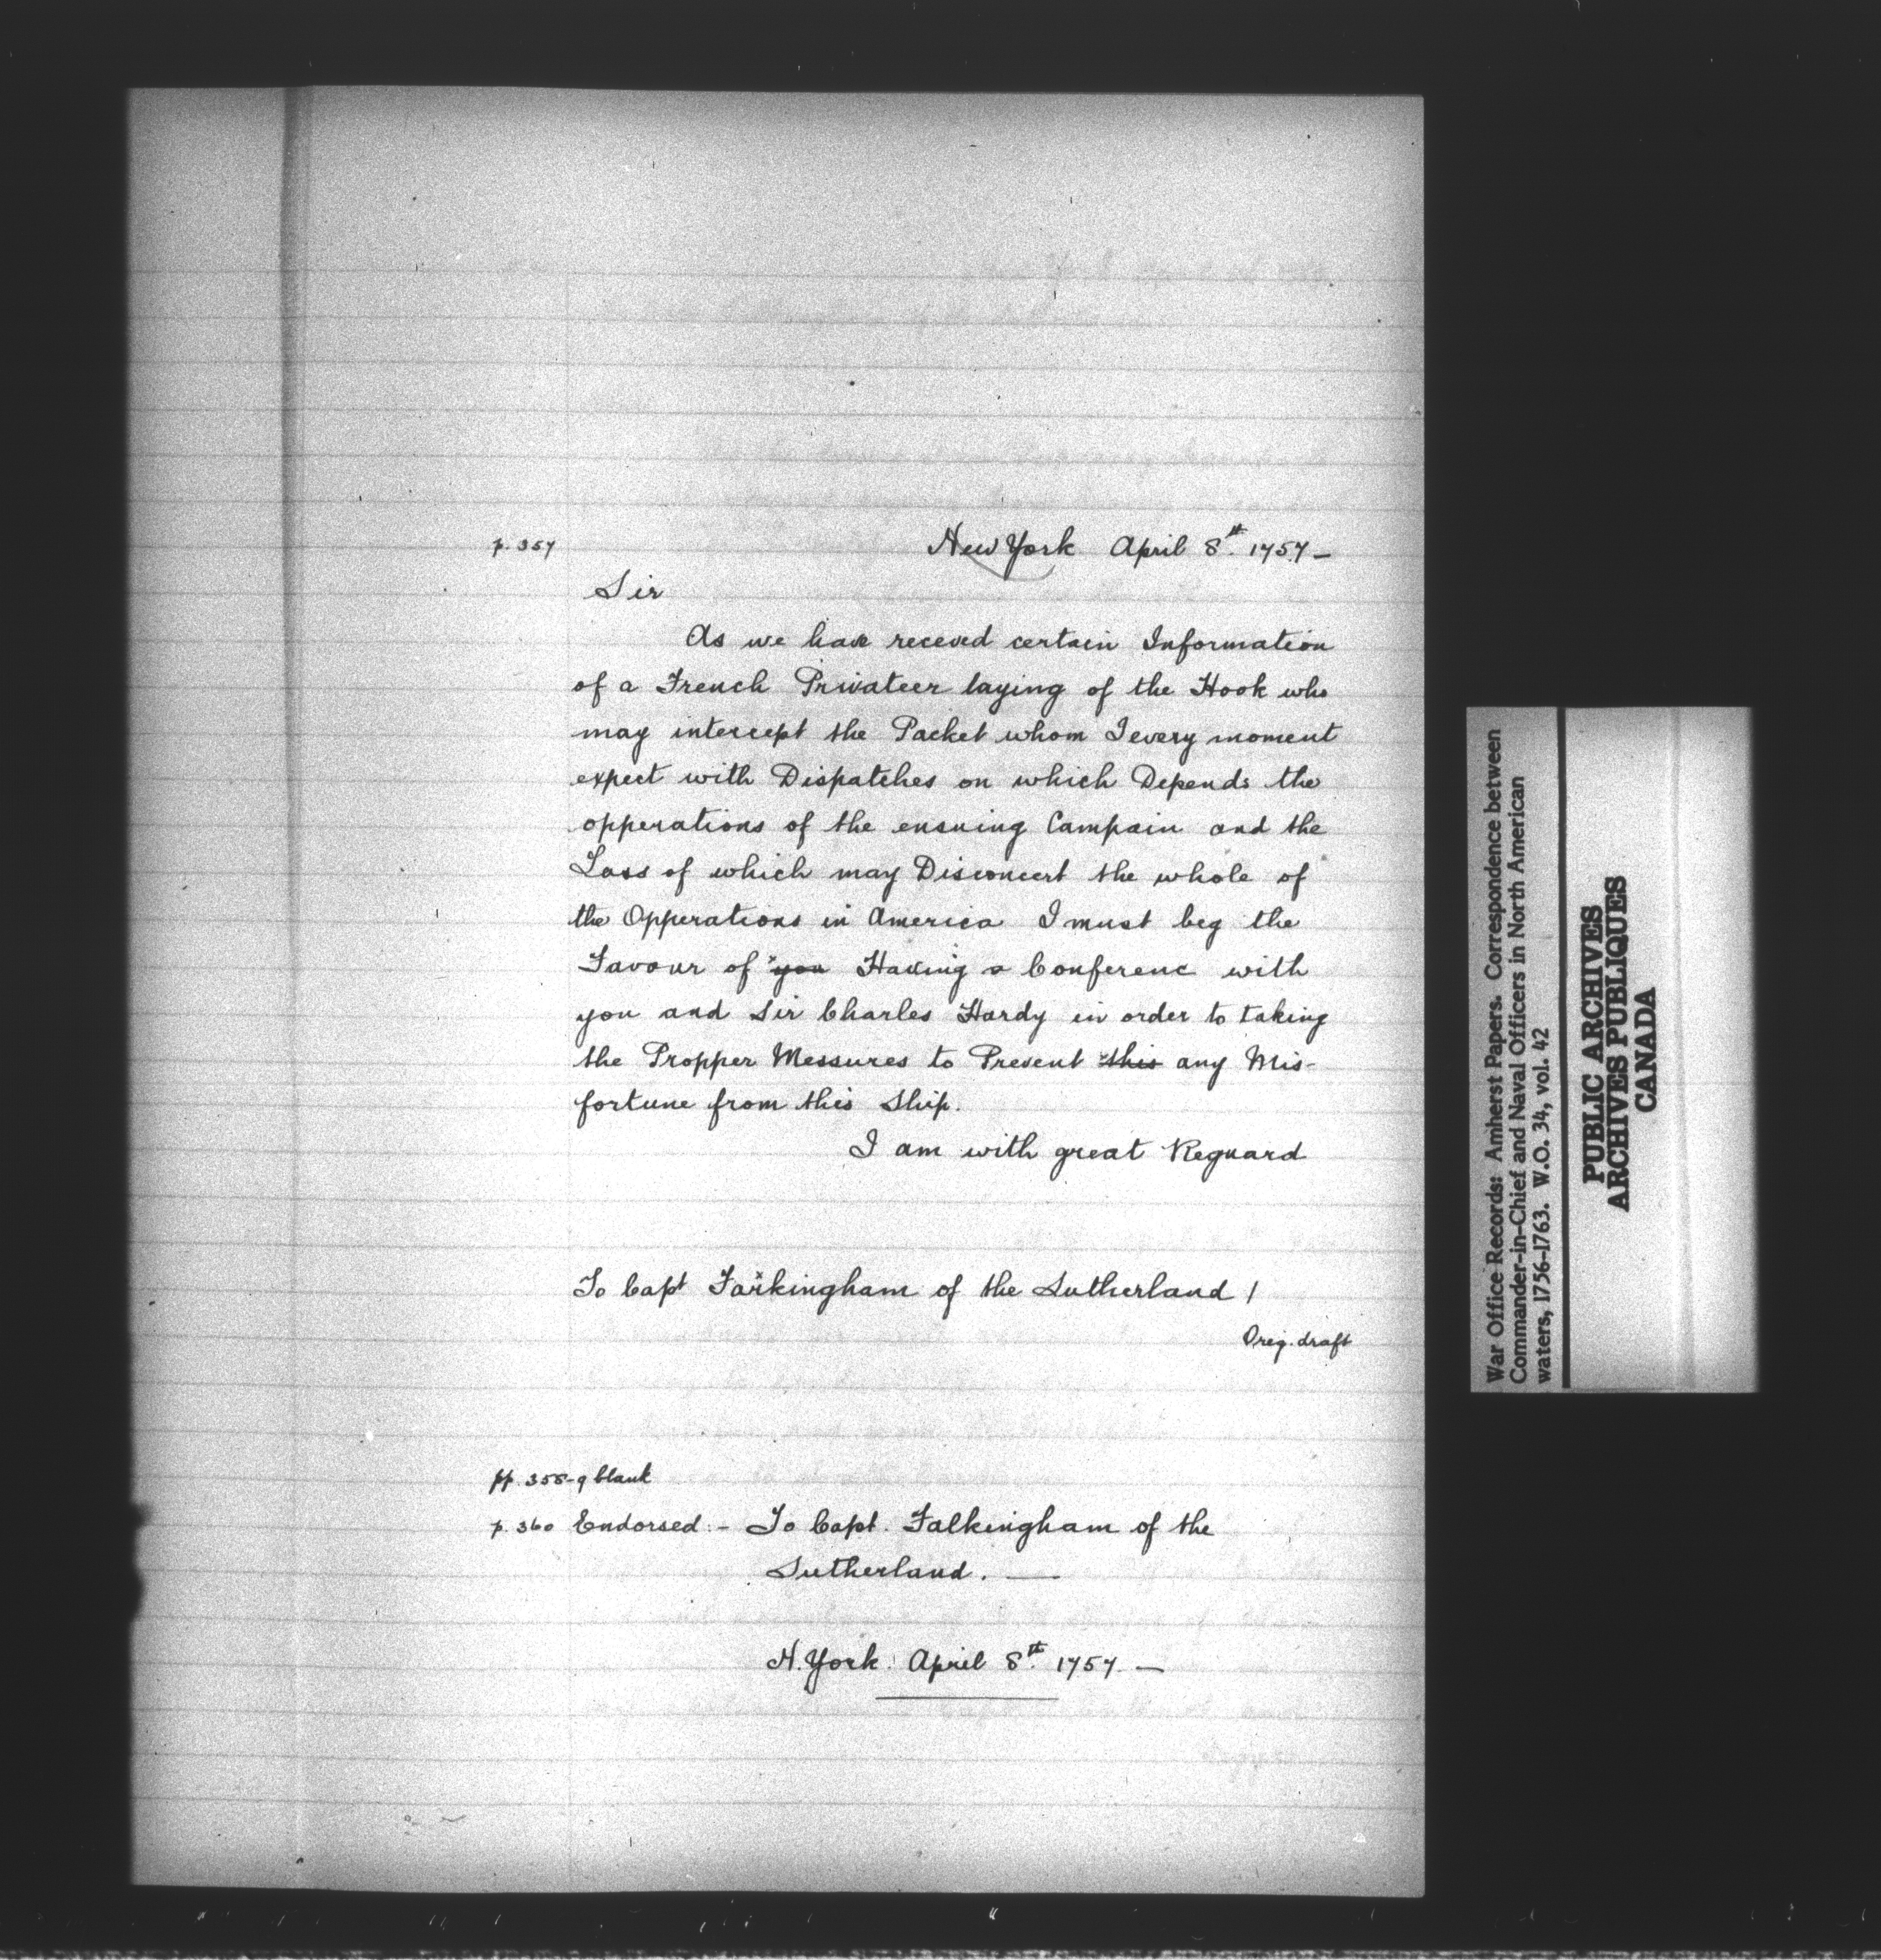 p. 357
New York April 8th. 1757 —
Sir
As we have receved certain Information
of a French Privateer laying of the Hook who
may intercept the Packet whom I every moment
expect with Dispatches on which Depends the
opperations of the ensuing Campain and the
Loss of which may Disconcert the whole of
the Opperations in America I must beg the
Favour of you Having a Conferenc with
you and Sir Charles Hardy in order to taking
the Propper Messures to Prevent this any Mis-
fortune from this Ship.
I am with great Reguard
To Capt Farkingham of the Sutherland /
Orig. draft
pp. 358-9 blank
p. 360 Endorsed: - To Capt. Falkingham of the
Sutherland. —
N. York. April 8th. 1757. —
War Office Records: Amherst Papers. Correspondence between
Commander-in-Chief and Naval Officers in North American
waters, 1756-1763. W.O. 34, vol. 42
PUBLIC ARCHIVES
ARCHIVES PUBLIQUES
CANADA